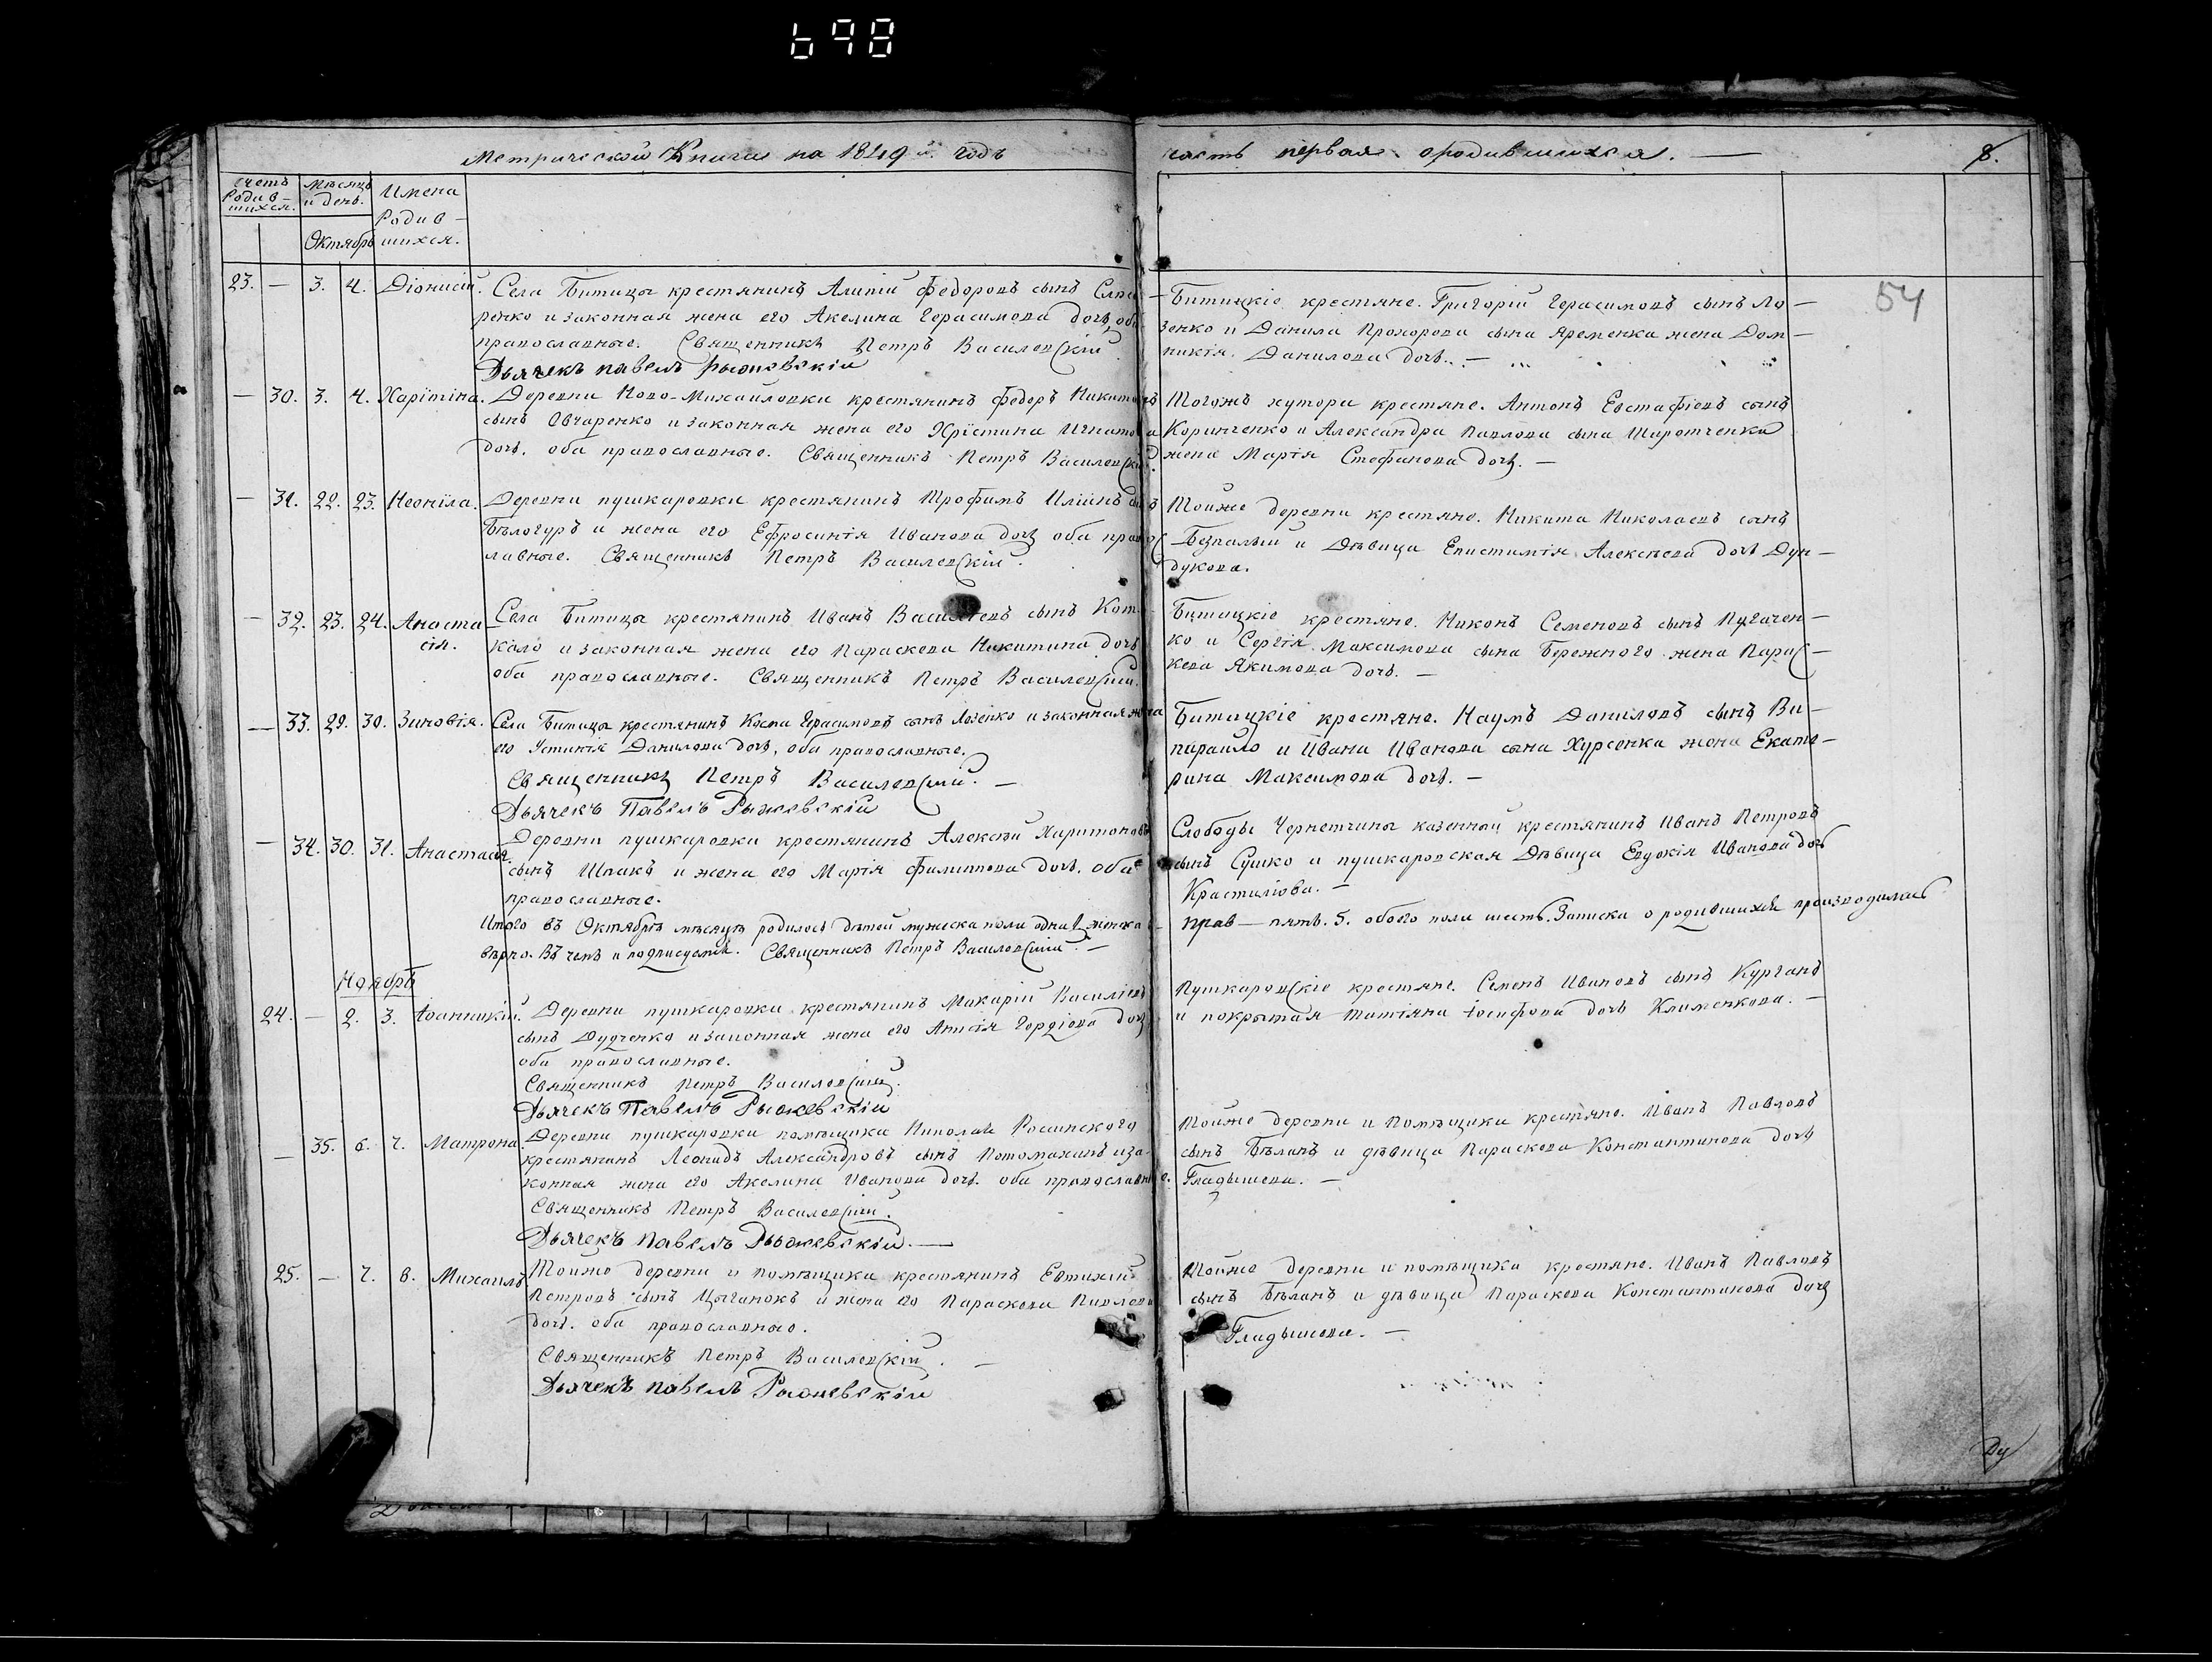 698
Метрической Книги на 1849й. годъ
часть первая. ородившихся. —
8.
счетъ Родив-шихся.
Мѣсяцъ и день.
Октябрь
Имена Родив-шихся.
54
23. — 3. 4. Діонисій. Села Битицы крестянинъ Алипій Федоровъ сынъ
ренко и законная жена его Акелина Герасимова дочь, оба
православные. Священникъ Петръ Василевскій
Дьячекъ Павелъ Рыжевскій
Битицкіе крестяне. Григорій Герасимовъ сынъ Ло-
зенко и Данила Прохорова сына Яременка жена Дом-
никія. Данилова дочь. —
— 30. 3. 4. Харітіна. Деревни Ново-Михайловки крестянинъ Федоръ Никитовъ
сынъ Овчаренко и законная жена его Хрістина Игнатова
дочь. оба православные. Священникъ Петръ Василевскій.
Тогожъ хутора крестяне. Антонъ Евстафіевъ сынъ
Коринченко и Александра Павлова сына Широтченка
жена Марія Стефанова дочь. —
— 31. 22. 23. Неоніла. Деревни пушкаровки крестянинъ Трофимъ Иліинъ сынъ
Бѣлогуръ и жена его Ефросинія Иванова дочь оба правос
лавные. Священникъ Петръ Василевскій.
Тойже деревни крестяне. Никита Николаевъ сынъ
Безпалый и Дѣвица Епистимія Алексѣева дочь Дун-
дукова.
— 32. 23. 24. Анаста
сія.
Села Битицы крестянинъ Иванъ Василіевъ сынъ Кот-
кало и законная жена его Параскева Никитина дочь
оба православные. Священникъ Петръ Василевскій.
Битицкіе крестяне. Никонъ Семеновъ сынъ Пугачен-
ко и Сергія Максимова сына Бережного жена Парас-
кева Якимова дочь. —
— 33. 29. 30. Зиновія. Села Битицы крестянинъ Косма Герасимовъ сынъ Лозенко и законная жена
его Устинія Данилова дочь, оба православные.
Священникъ Петръ Василевскій. —
Дьячекъ Павелъ Рыжевскій
Битицкіе крестяне. Наумъ Даниловъ сынъ Ви-
парайло и Ивана Иванова сына Хурсенка жена Екате-
рина Максимова дочь. —
— 34. 30. 31. Анастасія. Деревни пушкаровки крестянинъ Алексѣй Харитоновъ
сынъ Шпакъ и жена его Марія Филиппова дочь. оба
православные.
Слободы Чернетчины казенной крестянинъ Иванъ Петровъ
сынъ Сушко и пушкаровская Дѣвица Евдокія Иванова дочь
Крастиліова. —
Итого въ Октябрѣ мѣсяцѣ родилось дѣтей мужеска пола одна 1, женска —
прав — пять. 5. обоего пола шесть. Записка о родившихся производилась
вѣрно. Въ чемъ и подписуемся. Священникъ Петръ Василевскій. —
Ноябрь
24. — 2. 3. Іоанникій. Деревни пушкаровки крестянинъ Макарій Василіевъ
сынъ Дудченко и законная жена его Анисія Гордіева дочь
оба православные.
Священникъ Петръ Василевскій.
Дьячекъ Павелъ Рыжевскій
Пушкаровскіе крестяне. Семенъ Ивановъ сынъ Курганъ
и покрытая Татіяна Іосифова дочь Клименкова. —
— 35. 6. 7. Матрона. Деревни пушкаровки помѣщика Николая Росинского
крестянинъ Леонидъ Александровъ сынъ Потомахинъ и за-
конная жена его Акелина Иванова дочь. оба православные.
Священникъ Петръ Василевскій.
Дьячекъ Павелъ Рыжевскій. —
Тойже деревни и Помѣщика крестяне. Иванъ Павловъ
сынъ Бѣланъ и дѣвица Параскева Константинова дочь
Гладышева. —
25. — 7. 8. Михаилъ. Тойже деревни и помѣщика крестянинъ Евтихій
Петровъ сынъ Цыганокъ и жена его Параскева Павлова
дочь. оба православные.
Священникъ Петръ Василевскій. —
Дьячекъ Павелъ Рыжевскій
Тойже деревни и помѣщика крестяне. Иванъ Павловъ
сынъ Бѣланъ и дѣвица Параскева Константинова дочь
Гладышева. —